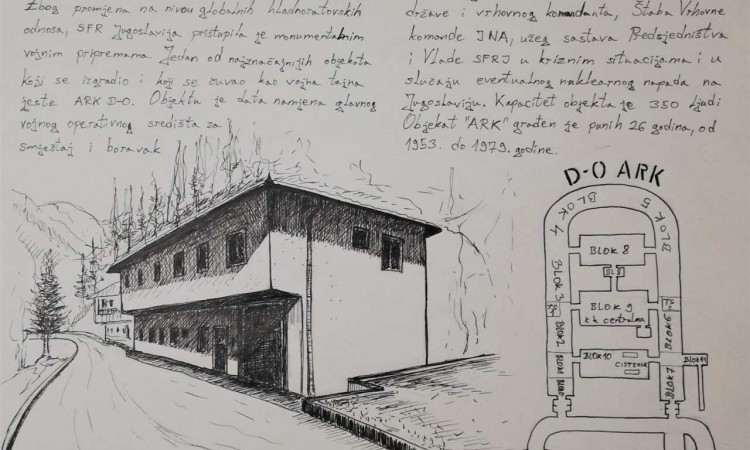 Zbog promjena na nivou globalnih hladnoratovskih
odnosa, SFR Jugoslavija pristupila je monumentalnim
vojnim pripremama. Jedan od najznačajnijih objekata
koji se izgradio i koji se čuvao kao vojna tajna
jeste ARK D-0. Objektu je data namjena glavnog
vojnog operativnog središta za
smještaj i boravak
države i vrhovnog komandanta, Štaba Vrhovne
komande JNA, užeg sastava Predsjedništva
i Vlade SFRJ u kriznim situacijama i u
slučaju eventualnog nuklearnog napada na
Jugoslaviju. Kapacitet objekta je 350 ljudi
Objekat "ARK" građen je punih 26 godina, od
1953. do 1979. godine.
D-0 ARK
BLOK 4
BLOK 5
BLOK 8
BLOK 3
BLOK 9
k.k centrala
BLOK 6
BLOK 2
BLOK 10
CISTERNE
BLOK 11
BLOK 7